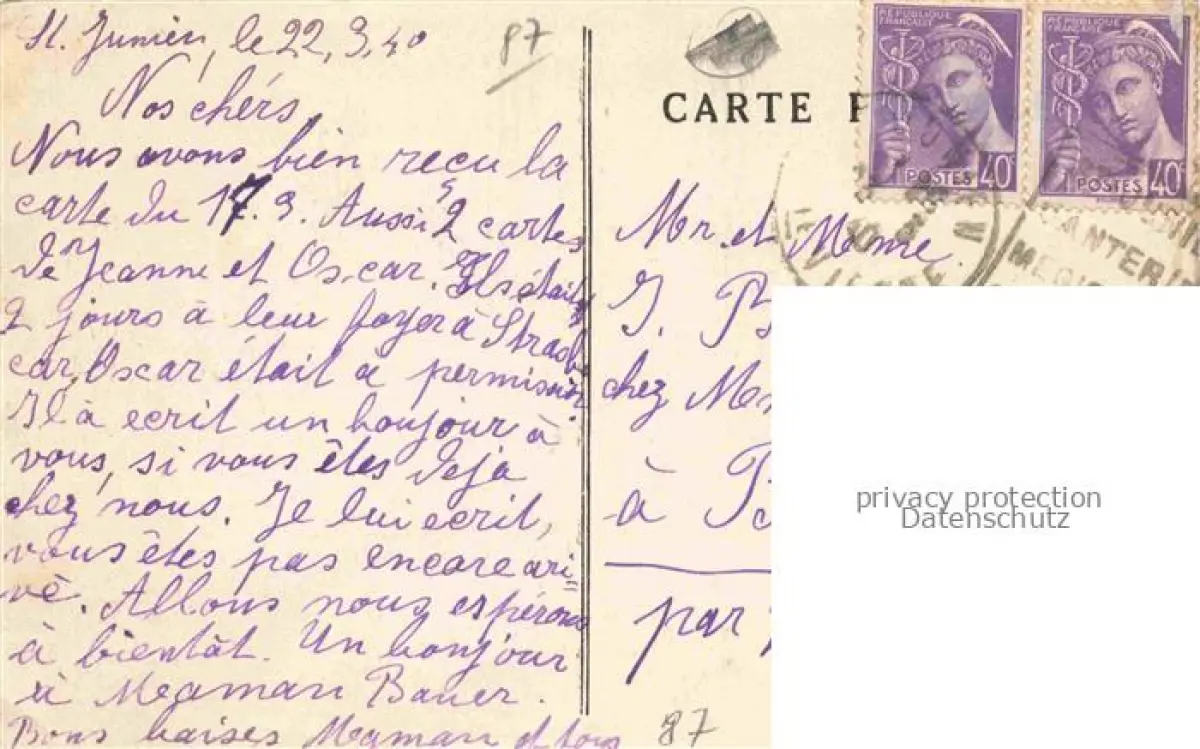 St. Junien, le 22, 3, 40
87
Nos chérs
Nous avons bien recu la
carte du 17. 3. Aussi 2 cartes
de Jeanne et Oscar. Ils était
2 jours à leur foyer à Strasb.
car, Oscar était a permission.
Il à ecrit un bonjour à
vous, si vous êtes deja
chez nous. Je lui ecrit,
vous êtes pas encore ari=
vé. Allons nous espérons
à bientât. Un bonjour
à Maman Bauer.
Bons baises Maman et tous
CARTE P
REPUBLIQUE FRANÇAISE
POSTES 40c
REPUBLIQUE FRANÇAISE
POSTES 40c
Mr. et Mme.
J. B
chez
à
par
87
privacy protection
Datenschutz